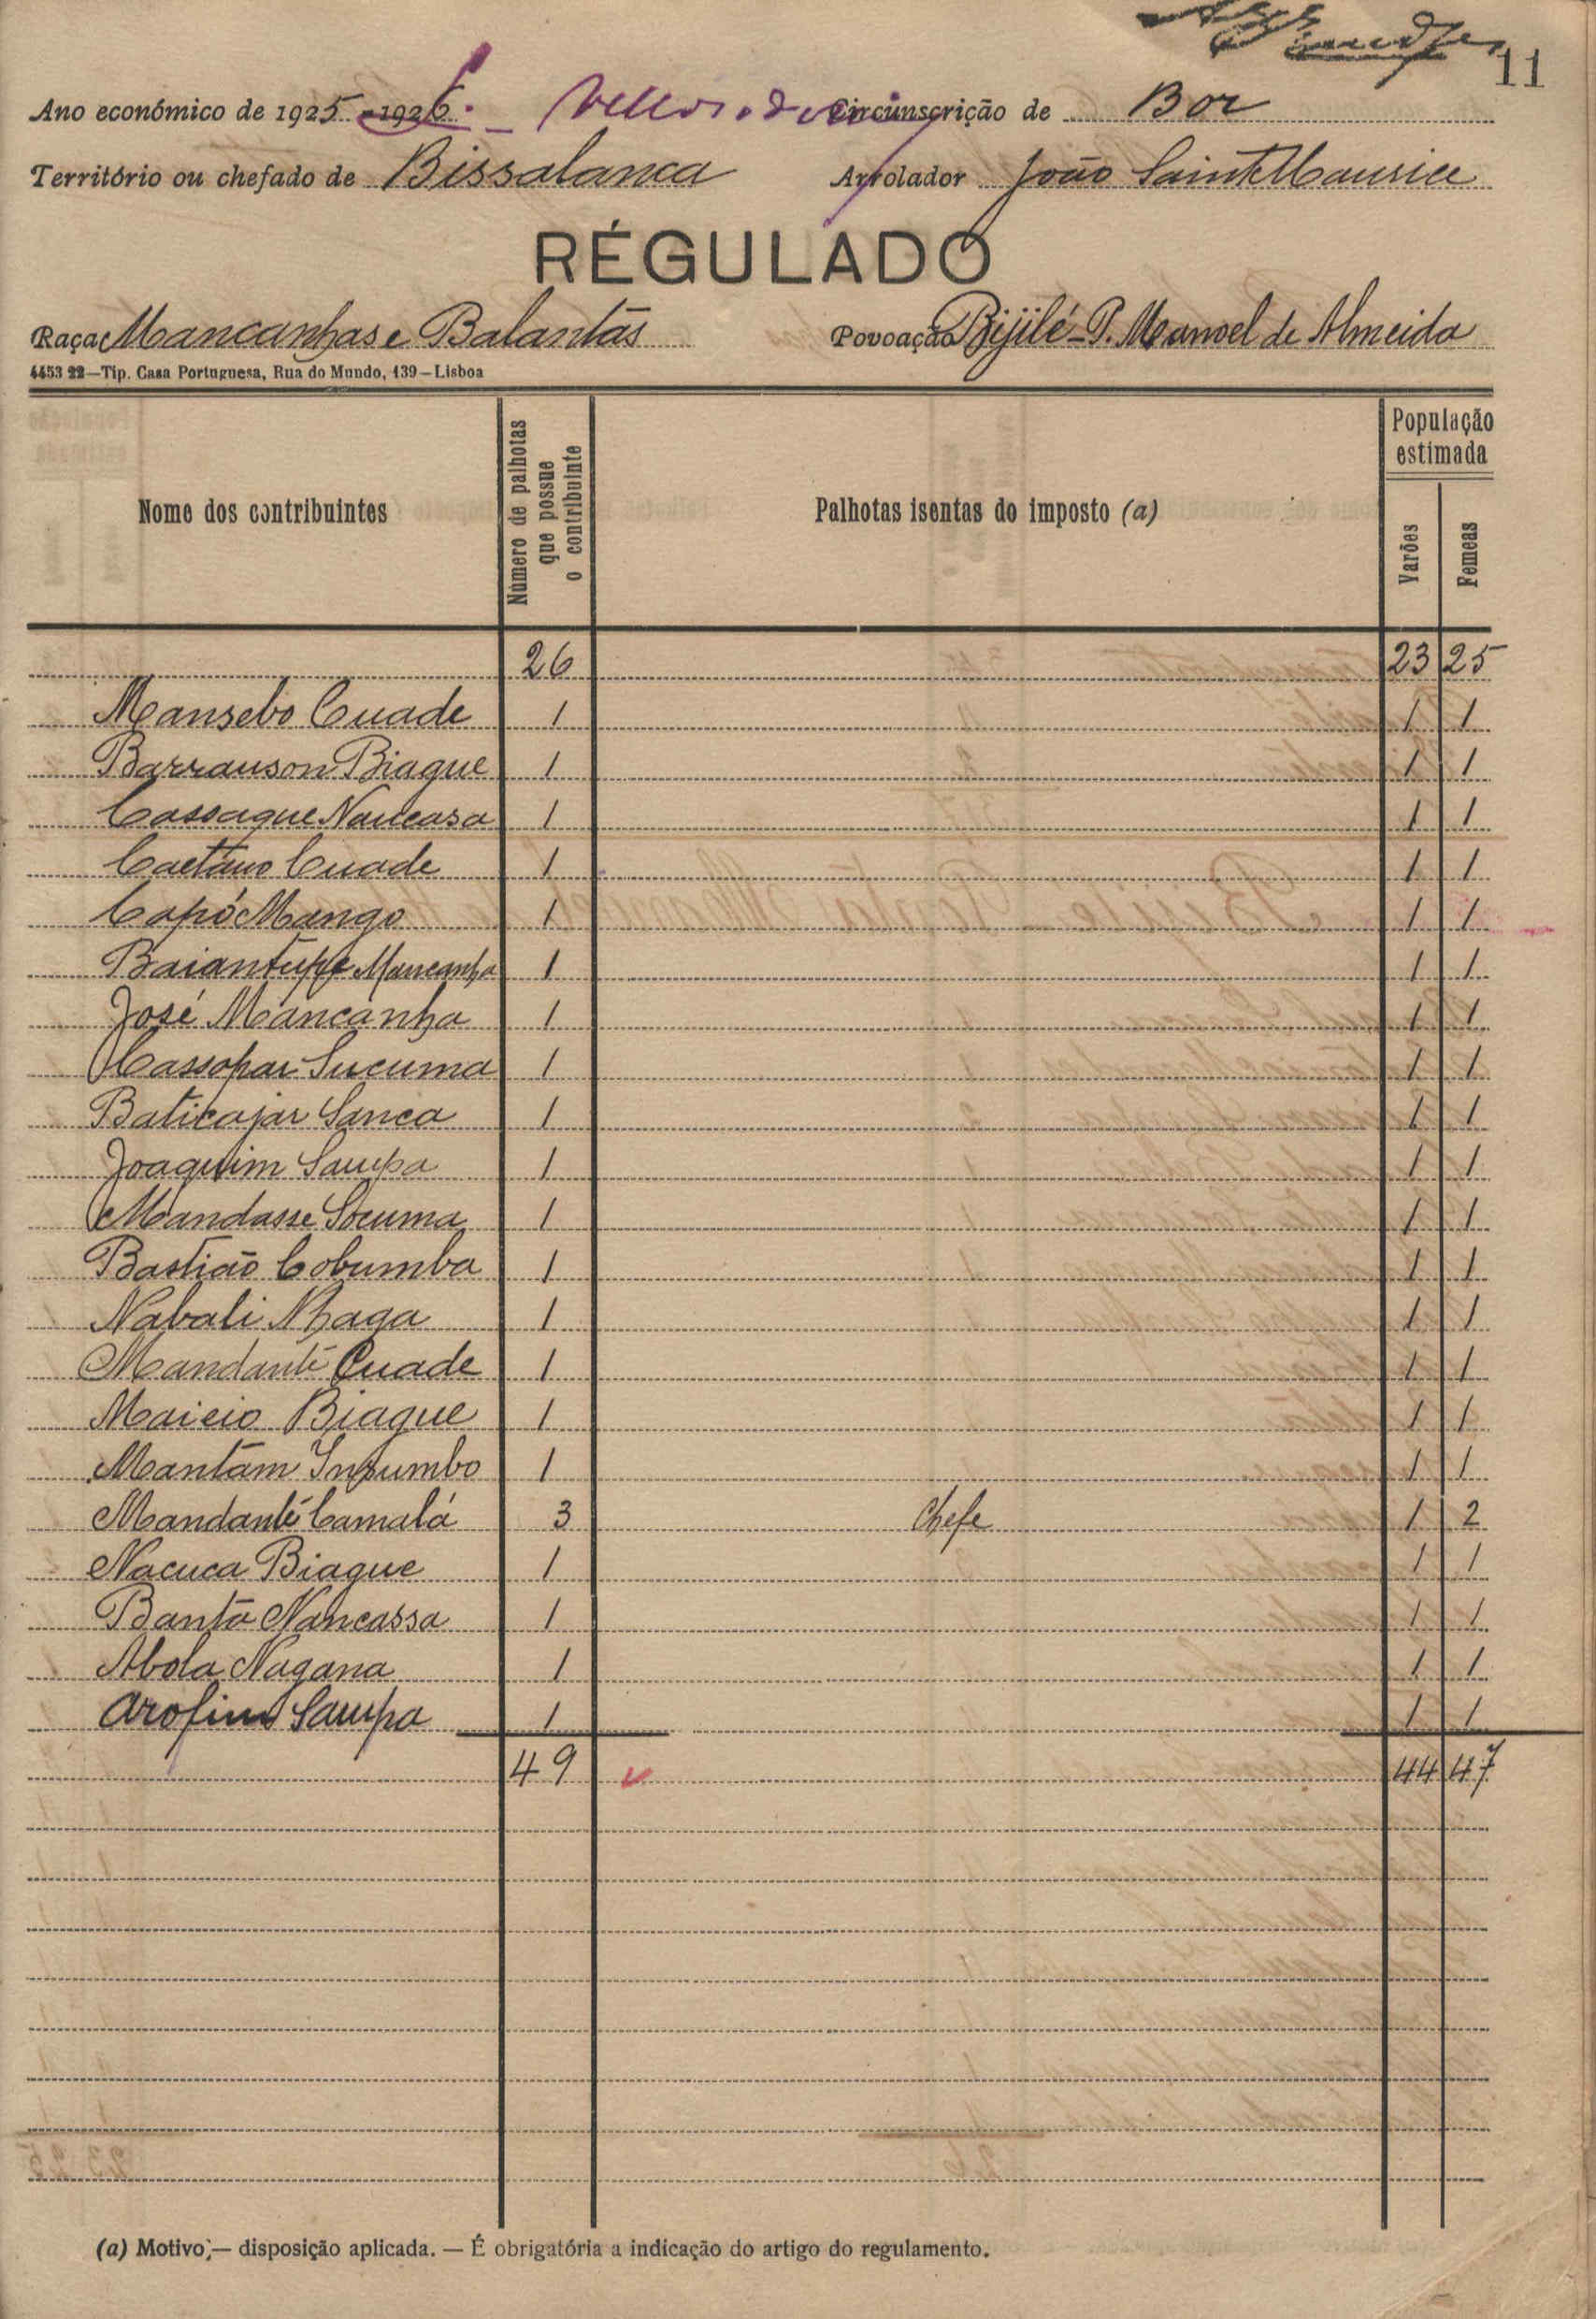 11
Ano económico de 1925-1926. Circunscrição de Bor
Território ou chefado de Bissalanca Arrolador João Saint Maurice
RÉGULADO
Raça Mancanhas e Balantãs Povoação Bijilé - P. Manoel de Almeida
4453 22—Tip. Casa Portuguesa, Rua do Mundo, 139—Lisboa
Nome dos contribuintes Número de palhotas que possue o contribuinte Palhotas isentas do imposto (a) População estimada
Varões Femeas
26 23 25
Mansebo Cuade 1 1 1
Barranson Biague 1 1 1
Cassaque Nancasa 1 1 1
Caetano Cuade 1 1 1
Capó Mango 1 1 1
Mancanha 1 1 1
José Mancanha 1 1 1
Cassopar Sucuma 1 1 1
Baticajar Sanca 1 1 1
Joaquim Sampa 1 1 1
Mandasse Socuma 1 1 1
Bastião Cobumba 1 1 1
Nabali Nhaga 1 1 1
Mandanté Cuade 1 1 1
Maieio Biague 1 1 1
Mantam Insumbo 1 1 1
Mandanté Camalá 3 Chefe 1 2
Nacuca Biague 1 1 1
Banta Nancassa 1 1 1
Abola Nagana 1 1 1
Sampa 1 1 1
49 44 47
(a) Motivo;— disposição aplicada. — É obrigatória a indicação do artigo do regulamento.